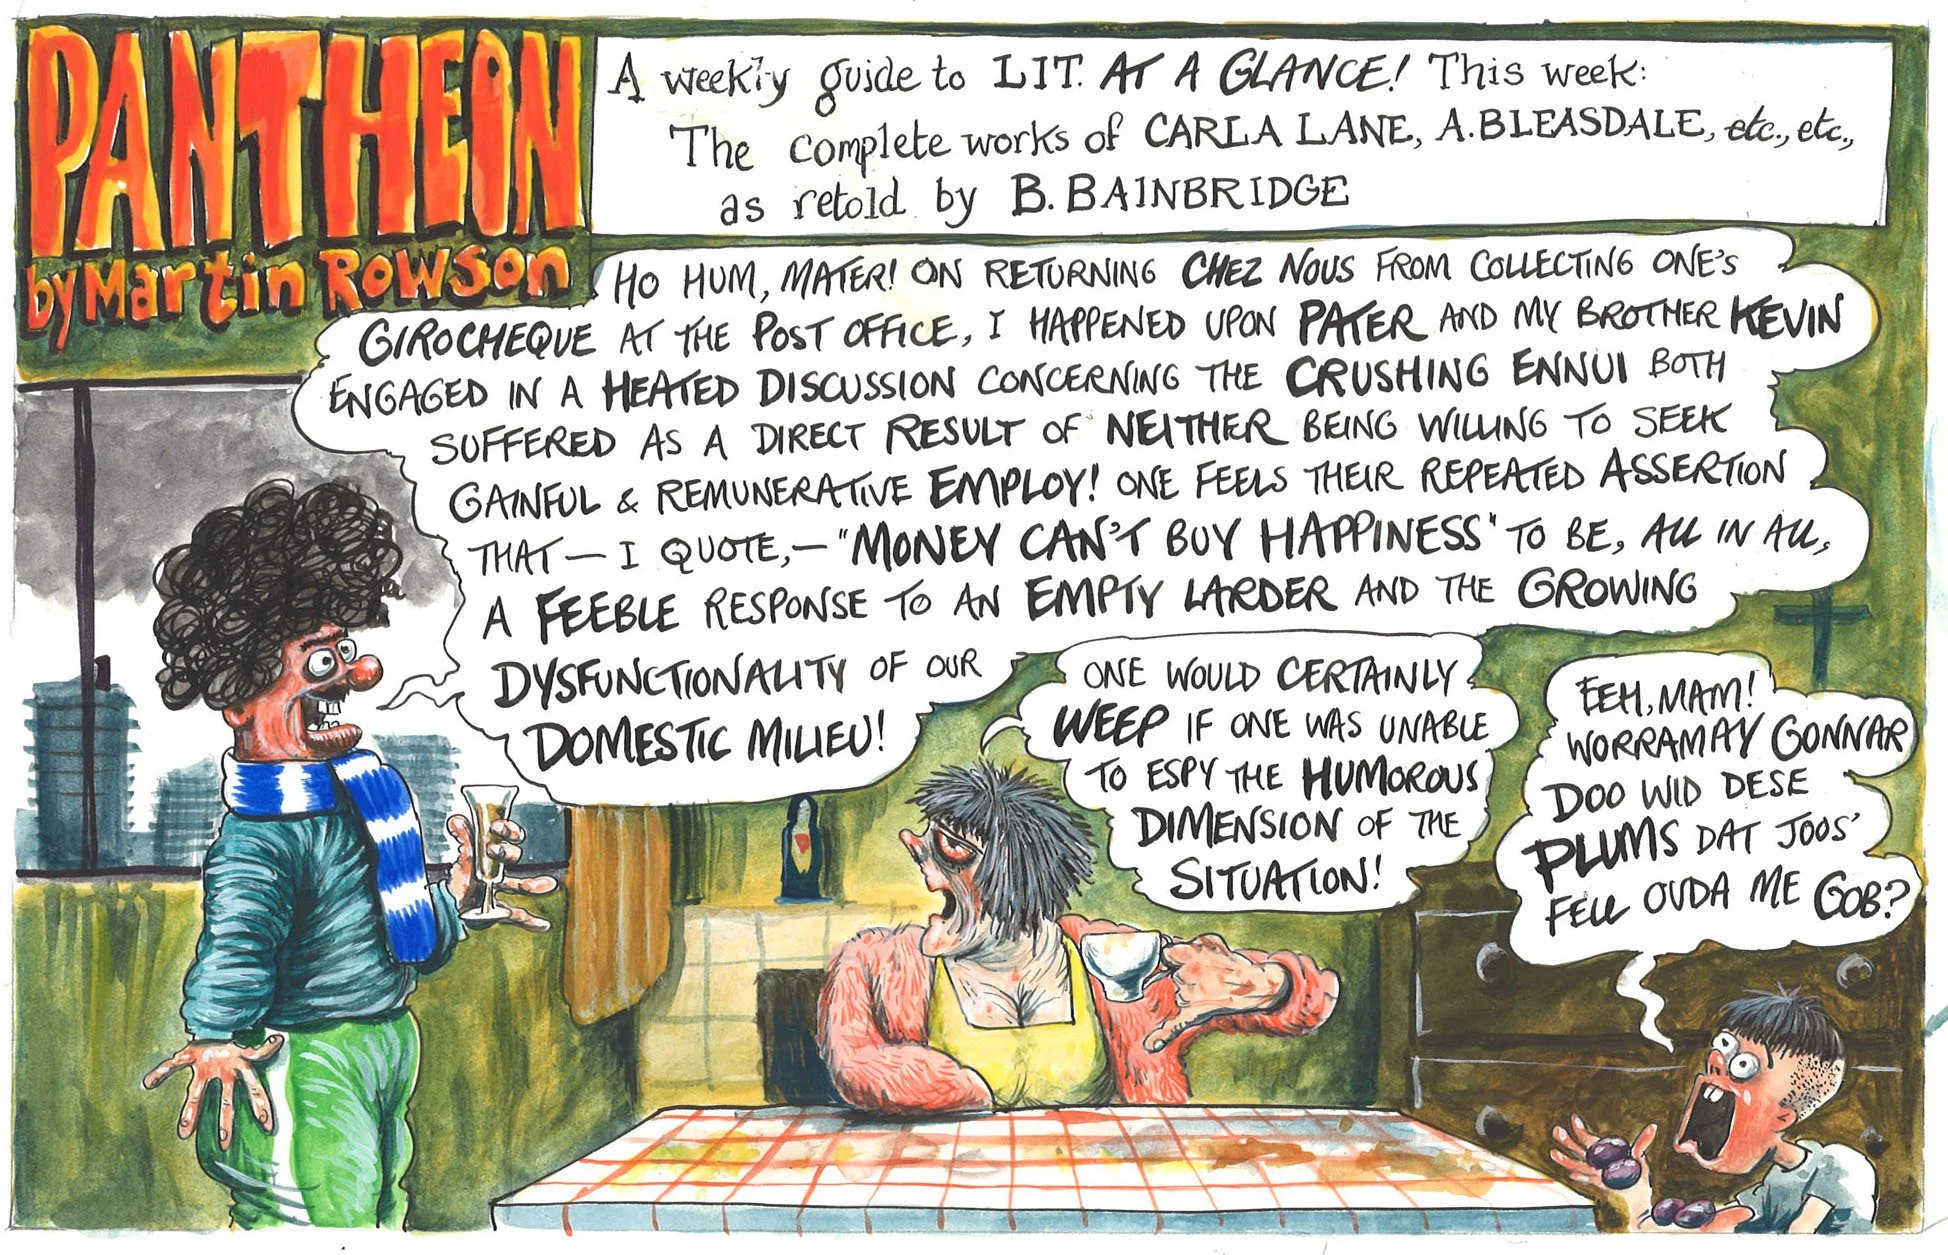 PANTHEON
by Martin Rowson
A weekly guide to LIT. AT A GLANCE! This week:
The complete works of CARLA LANE, A.BLEASDALE, etc., etc.,
as retold by B. BAINBRIDGE
HO HUM, MATER! ON RETURNING CHEZ NOUS FROM COLLECTING ONE'S
GIROCHEQUE AT THE POST OFFICE, I HAPPENED UPON PATER AND MY BROTHER KEVIN
ENGAGED IN A HEATED DISCUSSION CONCERNING THE CRUSHING ENNUI BOTH
SUFFERED AS A DIRECT RESULT OF NEITHER BEING WILLING TO SEEK
GAINFUL & REMUNERATIVE EMPLOY! ONE FEELS THEIR REPEATED ASSERTION
THAT — I QUOTE, — "MONEY CAN'T BUY HAPPINESS" TO BE, ALL IN ALL,
A FEEBLE RESPONSE TO AN EMPTY LARDER AND THE GROWING
DYSFUNCTIONALITY OF OUR
DOMESTIC MILIEU!
ONE WOULD CERTAINLY
WEEP IF ONE WAS UNABLE
TO ESPY THE HUMOROUS
DIMENSION OF THE
SITUATION!
EEH, MAM!
WORRAMAY GONNAR
DOO WID DESE
PLUMS DAT JOOS'
FELL OUDA ME GOB?